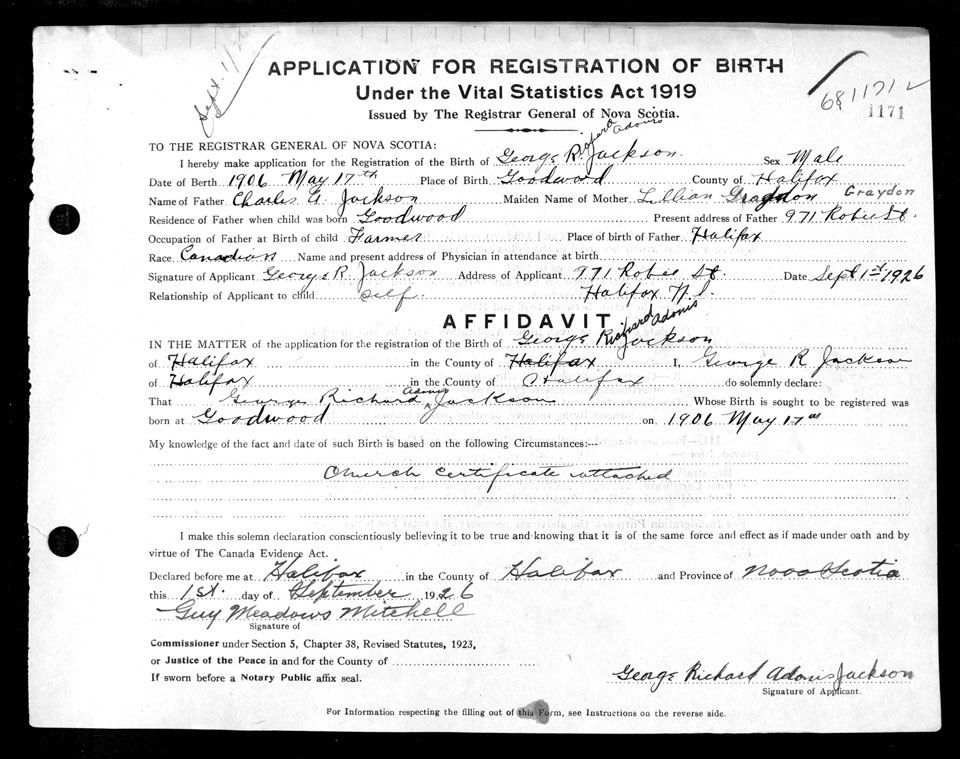 Sept. 1/26
APPLICATION FOR REGISTRATION OF BIRTH
Under the Vital Statistics Act 1919
Issued by The Registrar General of Nova Scotia.
681171 2
1171
TO THE REGISTRAR GENERAL OF NOVA SCOTIA:
Richard Adonis
I hereby make application for the Registration of the Birth of George R. Jackson. Sex Male
Date of Berth 1906 May 17th Place of Birth Goodwood County of Halifax
Name of Father Charles A. Jackson Maiden Name of Mother Lillian Graydon Graydon
Residence of Father when child was born Goodwood Present address of Father 971 Robie St.
Occupation of Father at Birth of child Farmer Place of birth of Father Halifax
Race Canadian Name and present address of Physician in attendance at birth
Signature of Applicant George R. Jackson Address of Applicant 971 Robie St. Date Sept 1st 1926
Relationship of Applicant to child self Halifax N.S.
AFFIDAVIT
IN THE MATTER of the application for the registration of the Birth of George Richard Adonis Jackson
of Halifax in the County of Halifax I, George R Jackson
of Halifax in the County of Halifax do solemnly declare:
That George Richard Adonis Jackson Whose Birth is sought to be registered was
born at Goodwood on 1906 May 17th
My knowledge of the fact and date of such Birth is based on the following Circumstances:--
Church Certificate attached
I make this solemn declaration conscientiously believing it to be true and knowing that it is of the same force and effect as if made under oath and by
virtue of The Canada Evidence Act.
Declared before me at Halifax in the County of Halifax and Province of Nova Scotia
this 1st. day of September 1926
Guy Meadows Mitchell
Signature of
Commissioner under Section 5, Chapter 38, Revised Statutes, 1923,
or Justice of the Peace in and for the County of
If sworn before a Notary Public affix seal.
George Richard Adonis Jackson
Signature of Applicant.
For Information respecting the filling out of this Form, see Instructions on the reverse side.